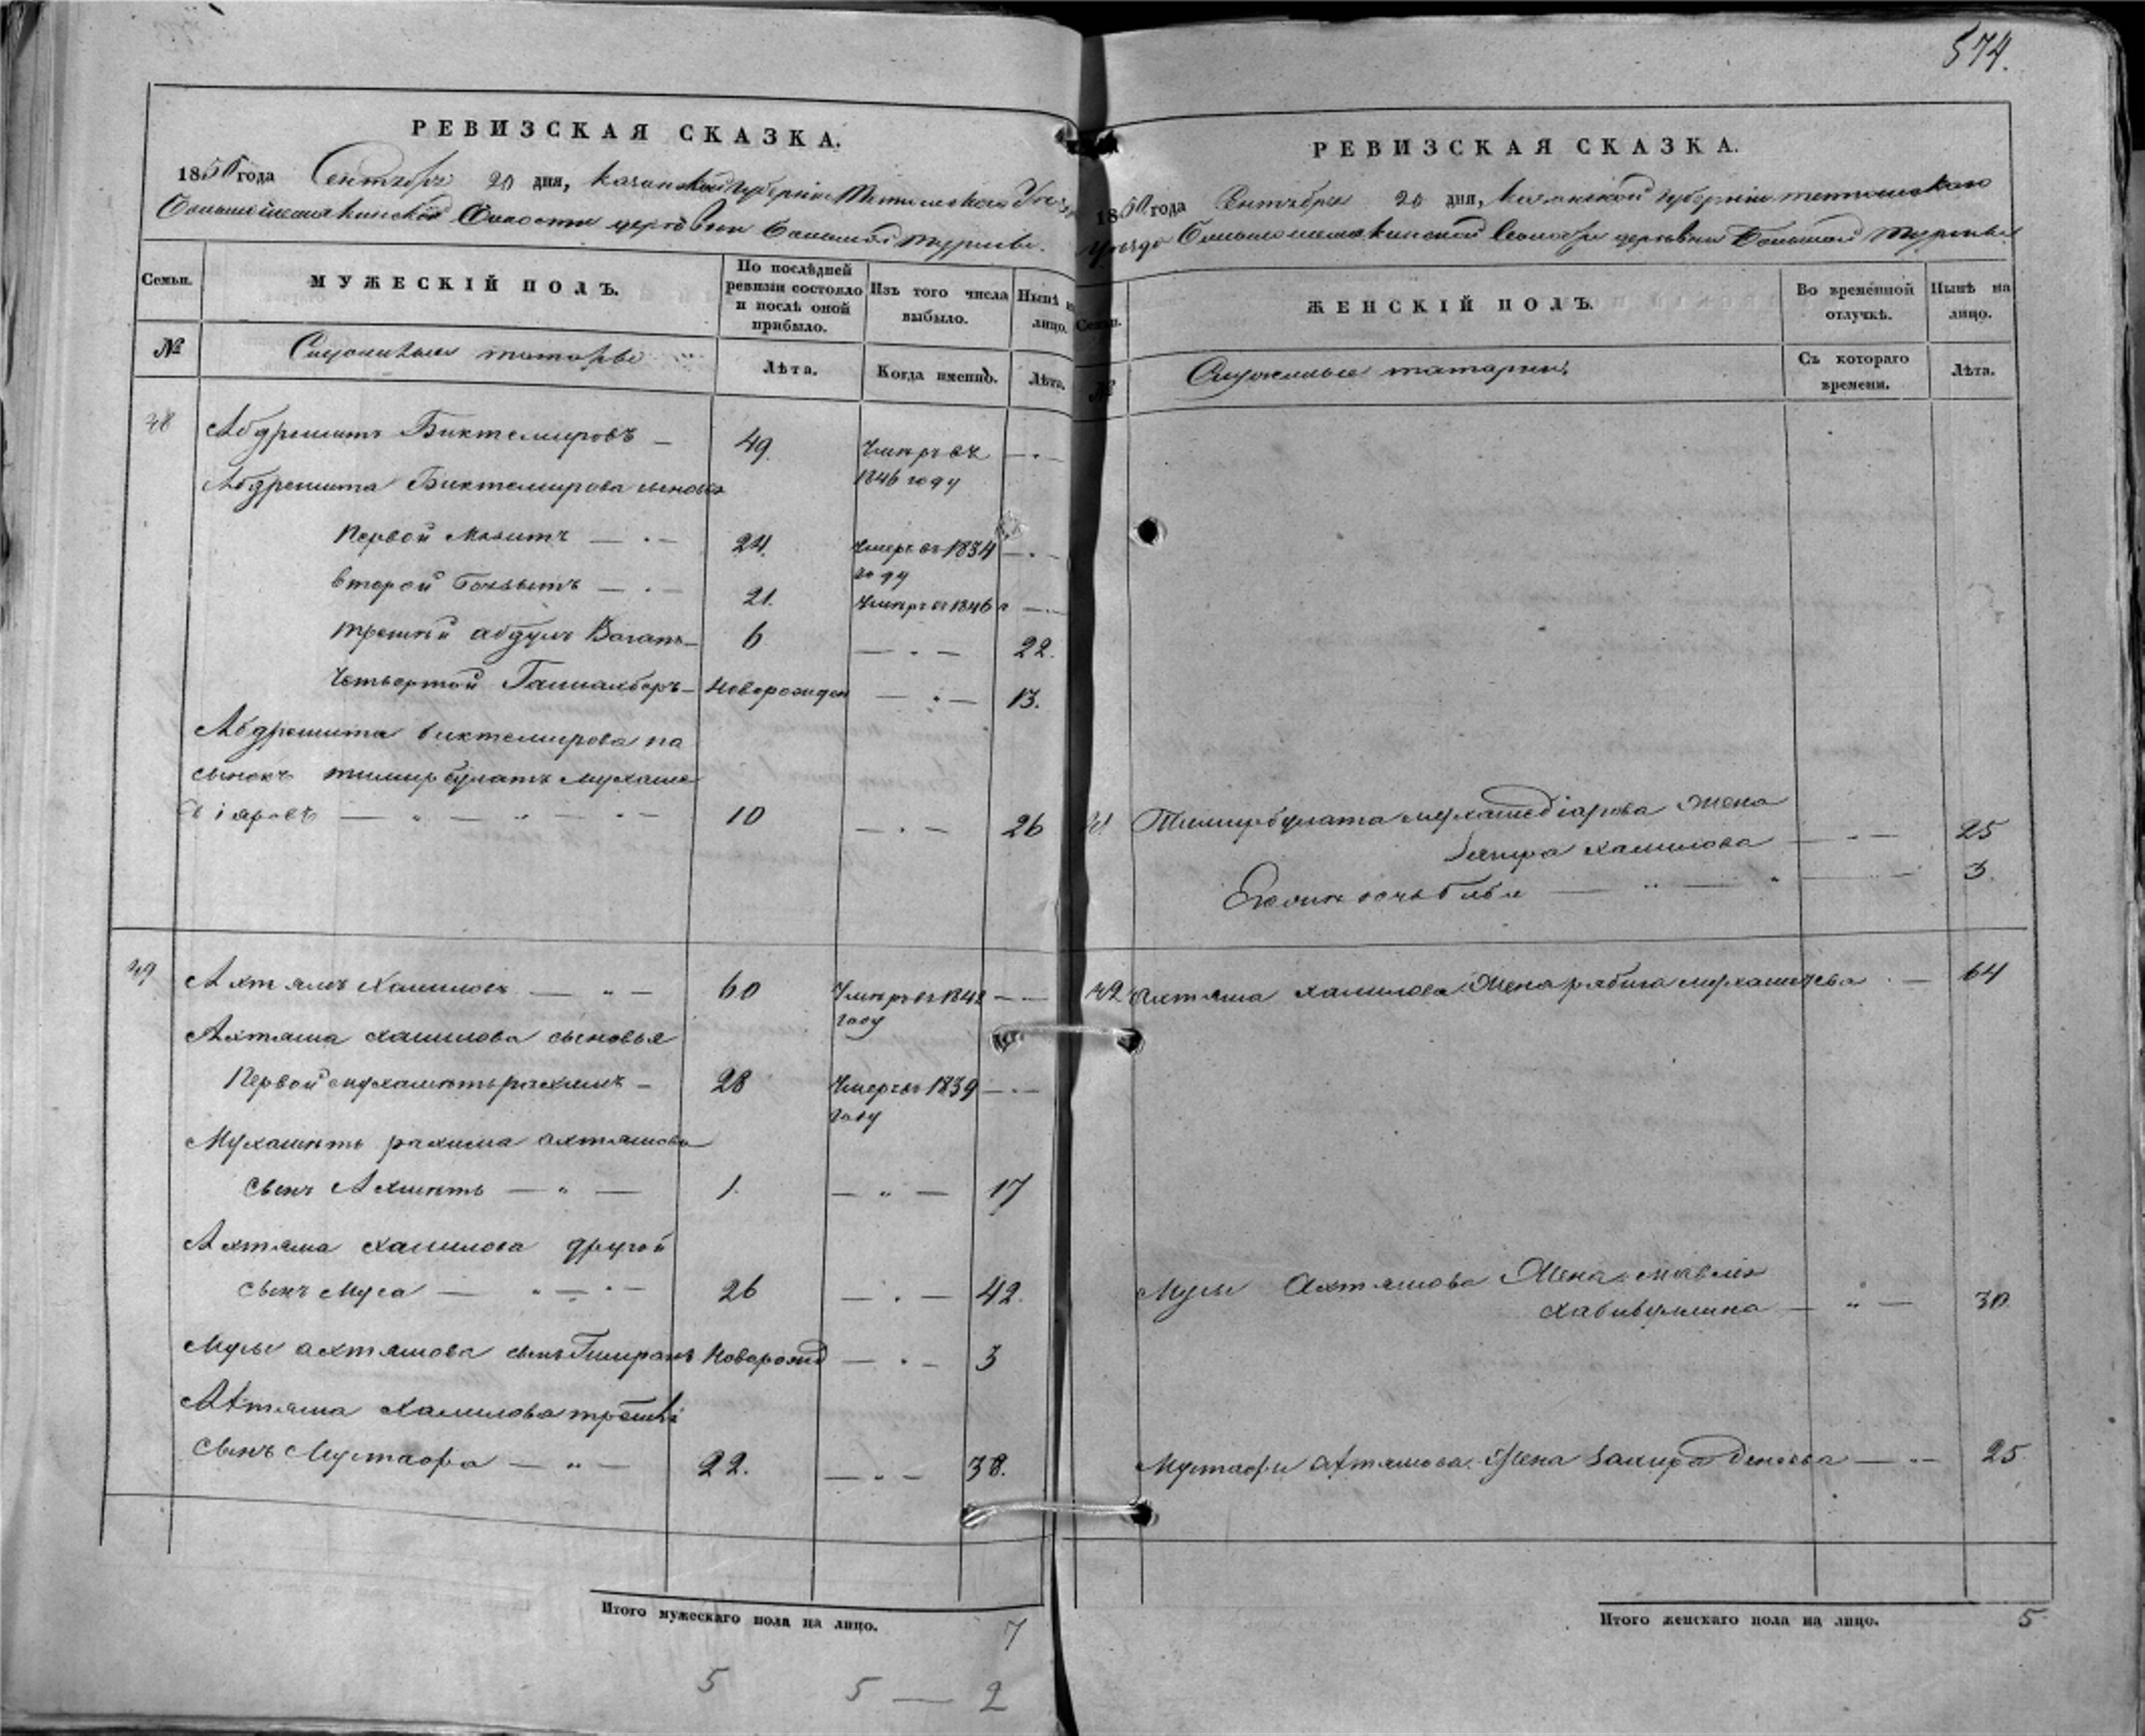 574.
РЕВИЗСКАЯ СКАЗКА.
1850 года Сентября 20 дня, Казанской губернии Тетюшскаго Уезда
Большешемякинской Волости деревни Большой Турмы.
Семьи. МУЖЕСКІЙ ПОЛЪ. По послѣдней ревизіи состояло и послѣ оной прибыло. Изъ того числа выбыло. Нынѣ на лицо.
№ Служилые татары Лѣта. Когда именно. Лѣта.
48 Абдрешитъ Биктемировъ — 49. Умеръ въ 1846 году —
Абдрешита Биктемирова сыновья
Первой — 24. Умеръ въ 1834 году —
второй — 21. Умеръ въ 1846 г —
третій абдулъ Вагапъ — 6 — 22.
Четвертой — Новорожден — 13.
Абдрешита биктемирова па
сынокъ тимирбулатъ мухаме
діяровъ — 10 — 26
49 Ахтямъ Халиловъ — 60 Умеръ въ году —
Ахтяма халилова сыновья
Первой мухаметьрахимъ — 28 Умеръ въ 1839 году —
Мухаметь рахима ахтямова
сынъ Ахметь — 1. — 17
Ахтяма халилова другой
сынъ Муса — 26 — 42.
Мусы ахтямова сынъ Новорожд — 3
Ахтяма Халилова третій
сынъ Мустафа — 22. — 38.
Итого мужескаго пола на лицо. 7
5 5 — 2
РЕВИЗСКАЯ СКАЗКА.
1850 года Сентября 20 дня, Казанской губерніи тетюшскаго
уезда Большешемякинской Волости деревни Большой Турмы
Семьи. ЖЕНСКІЙ ПОЛЪ. Во временной отлучкѣ. Нынѣ на лицо.
№ Служилые татарки. Съ котораго времени. Лѣта.
Тимирбулата мухамедіарова Жена
халилова — 25
— 3.
Ахтяма халилова Жена рябига — 64
Мусы Ахтямова Жена
хабибуллина — 30
Мустафы ахтямова Жена — 25
Итого женскаго пола на лицо. 5